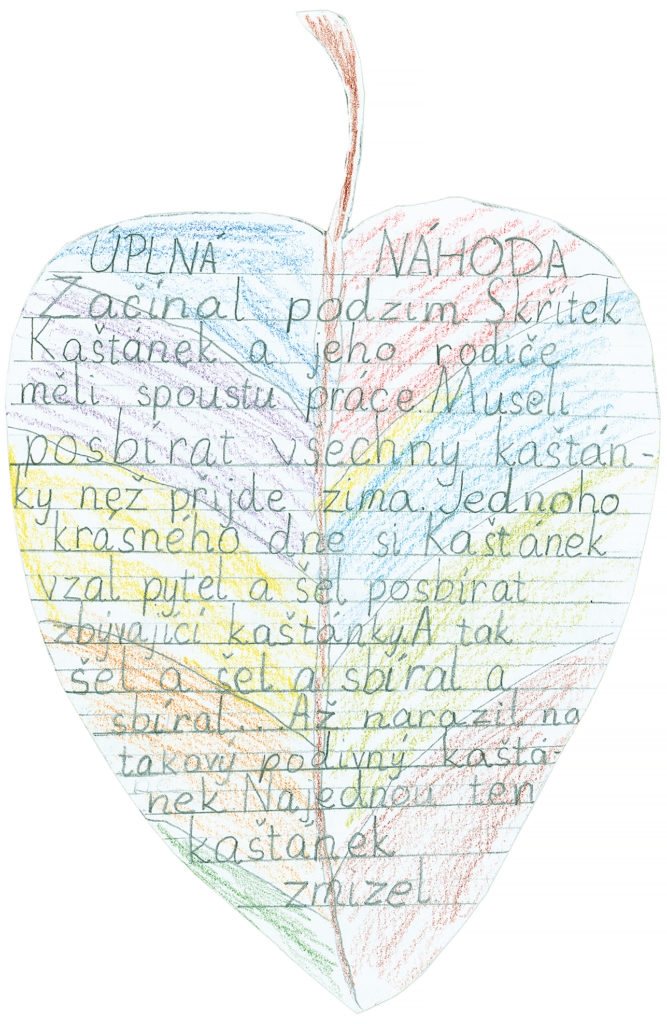 ÚPLNÁ NÁHODA
Začínal podzim Skřítek
Kaštánek a jeho rodiče
měli spoustu práce. Museli
posbírat všechny kaštán-
ky než příjde zima. Jednoho
krásného dne si Kaštánek
vzal pytel a šel posbírat
zbývající kaštánky. A tak
šel a šel a sbíral a
sbíral.. Až narazil na
takový podivný kaštá-
nek Najednou ten
kaštánek
zmizel